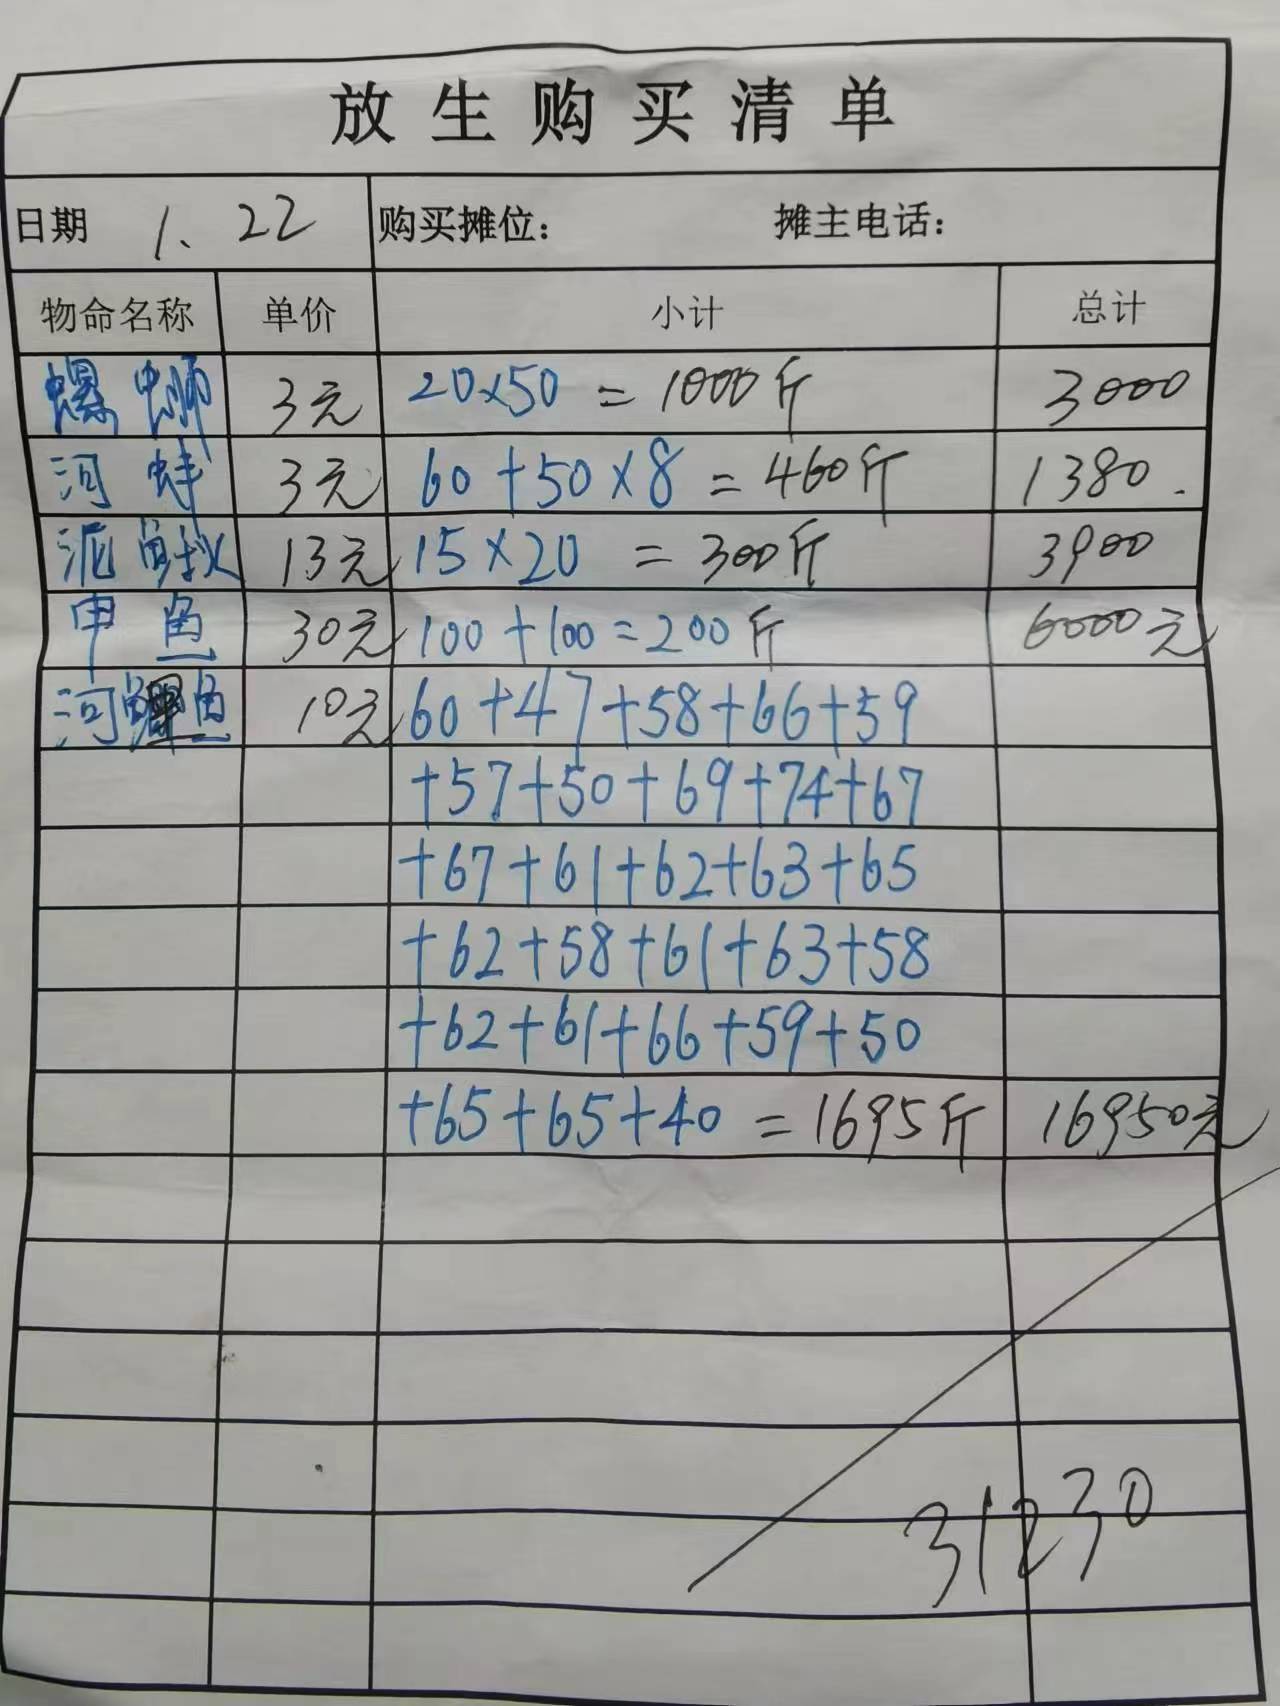 放生购买清单
日期 1.22 购买摊位： 摊主电话：
物命名称 单价 小计 总计
螺蛳 3元 20×50 = 1000斤 3000
河蚌 3元 60+50×8 = 460斤 1380.
泥鳅 13元 15×20 = 300斤 3900
甲鱼 30元 100+100=200斤 6000元
河鲤鱼 10元 60+47+58+66+59
+57+50+69+74+67
+67+61+62+63+65
+62+58+61+63+58
+62+61+66+59+50
+65+65+40 = 1695斤 16950元
31230